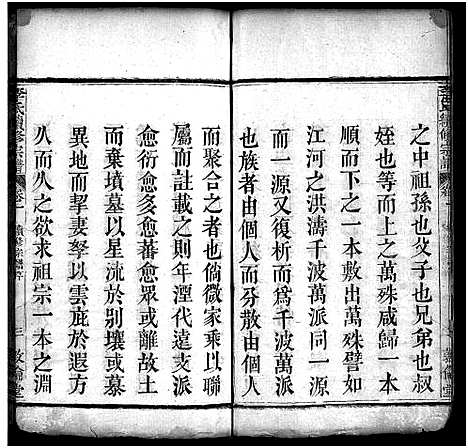 之中祖孫也父子也兄弟也叔
姪也等而上之萬殊咸歸一本
順而下之一本敷出萬殊譬如
江河之洪濤千波萬派同一源
而一源又復析而爲千波萬派
也族者由個人而分散由個人
而聚合之者也倘微家乘以聯
屬而註載之則年湮代遠支派
愈衍愈多愈蕃愈眾或離故土
而棄墳墓以星流於別壤或慕
異地而挈妻孥以雲庇於遐方
人而人之欲求祖宗一本之淵
李氏續修宗譜
卷一
三
敦倫堂